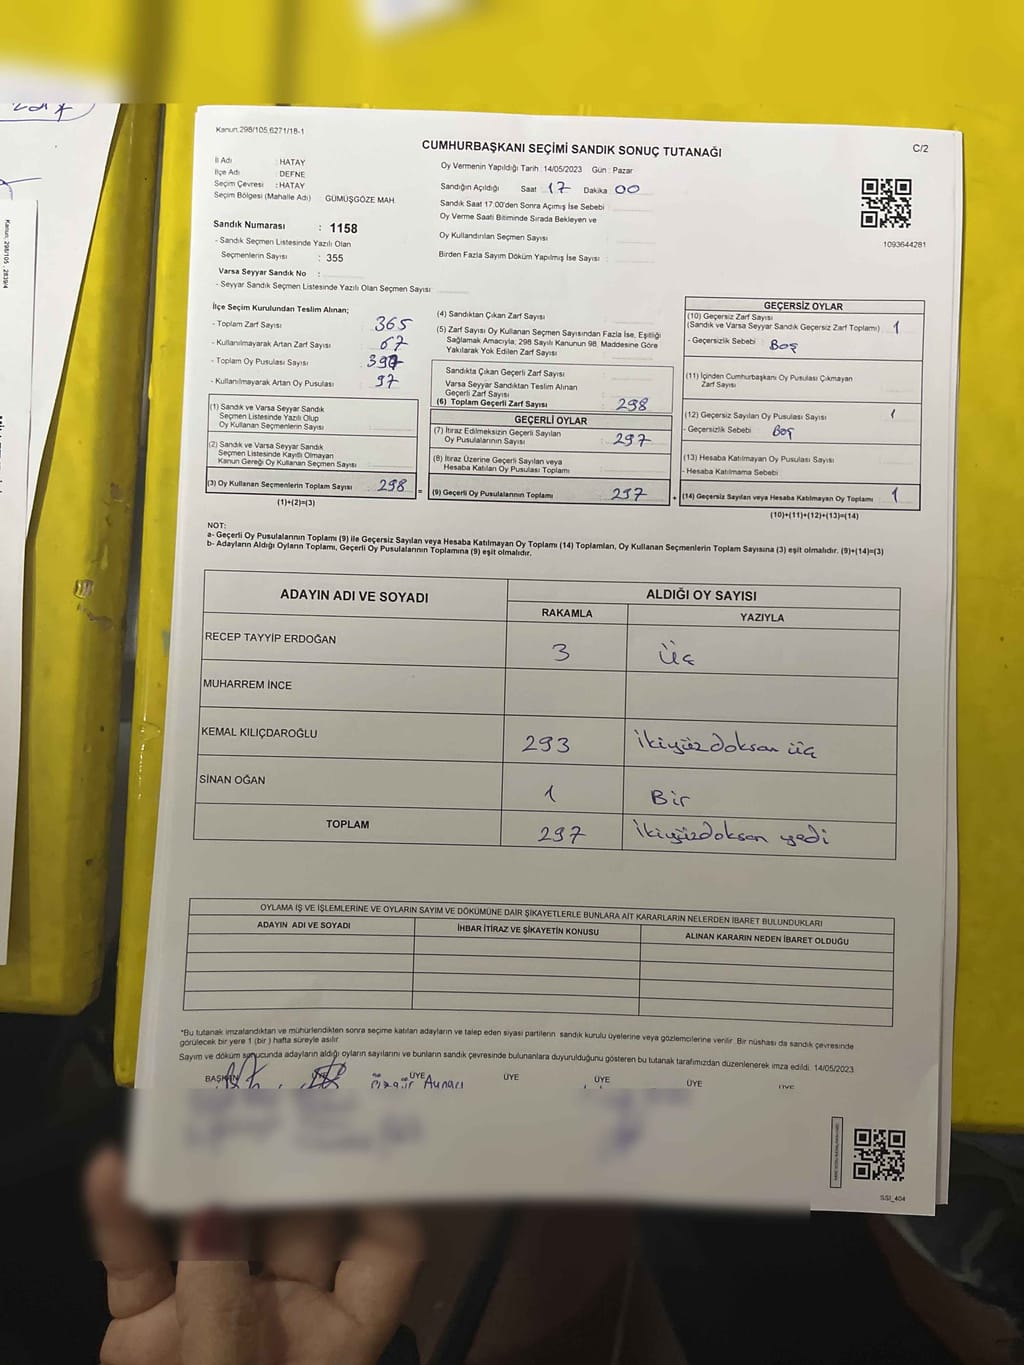 Kanun:298/105,6271/18-1
CUMHURBAŞKANI SEÇİMİ SANDIK SONUÇ TUTANAĞI
C/2
İl Adı : HATAY
İlçe Adı : DEFNE
Seçim Çevresi : HATAY
Seçim Bölgesi (Mahalle Adı) GÜMÜŞGÖZE MAH.
Oy Vermenin Yapıldığı Tarih : 14/05/2023 Gün : Pazar
Sandığın Açıldığı Saat 17 Dakika 00
Sandık Saat 17.00'den Sonra Açımış İse Sebebi
Oy Verme Saati Bitiminde Sırada Bekleyen ve
Oy Kullandırılan Seçmen Sayısı
Birden Fazla Sayım Döküm Yapılmış İse Sayısı :
1093644281
Sandık Numarası : 1158
- Sandık Seçmen Listesinde Yazılı Olan
Seçmenlerin Sayısı : 355
Varsa Seyyar Sandık No :
- Seyyar Sandık Seçmen Listesinde Yazılı Olan Seçmen Sayısı:
İlçe Seçim Kurulundan Teslim Alınan;
- Toplam Zarf Sayısı 365
- Kullanılmayarak Artan Zarf Sayısı 67
- Toplam Oy Pusulası Sayısı
- Kullanılmayarak Artan Oy Pusulası 97
(1) Sandık ve Varsa Seyyar Sandık
Seçmen Listesinde Yazılı Olup
Oy Kullanan Seçmenlerin Sayısı :
(2) Sandık ve Varsa Seyyar Sandık
Seçmen Listesinde Kayıtlı Olmayan
Kanun Gereği Oy Kullanan Seçmen Sayısı :
(3) Oy Kullanan Seçmenlerin Toplam Sayısı : 298
(1)+(2)=(3)
(4) Sandıktan Çıkan Zarf Sayısı
(5) Zarf Sayısı Oy Kullanan Seçmen Sayısından Fazla İse, Eşitliği
Sağlamak Amacıyla; 298 Sayılı Kanunun 98. Maddesine Göre
Yakılarak Yok Edilen Zarf Sayısı
Sandıkta Çıkan Geçerli Zarf Sayısı
Varsa Seyyar Sandıktan Teslim Alınan
Geçerli Zarf Sayısı
(6) Toplam Geçerli Zarf Sayısı 298
GEÇERLİ OYLAR
(7) İtiraz Edilmeksizin Geçerli Sayılan
Oy Pusulalarının Sayısı : 297
(8) İtiraz Üzerine Geçerli Sayılan veya
Hesaba Katılan Oy Pusulası Toplamı
= (9) Geçerli Oy Pusulalarının Toplamı 297
GEÇERSİZ OYLAR
(10) Geçersiz Zarf Sayısı
(Sandık ve Varsa Seyyar Sandık Geçersiz Zarf Toplamı) : 1
- Geçersizlik Sebebi : Boş
(11) İçinden Cumhurbaşkanı Oy Pusulası Çıkmayan
Zarf Sayısı
(12) Geçersiz Sayılan Oy Pusulası Sayısı 1
- Geçersizlik Sebebi : Boş
(13) Hesaba Katılmayan Oy Pusulası Sayısı
- Hesaba Katılmama Sebebi
+ (14) Geçersiz Sayılan veya Hesaba Katılmayan Oy Toplamı : 1
(10)+(11)+(12)+(13)=(14)
NOT:
a- Geçerli Oy Pusulalarının Toplamı (9) ile Geçersiz Sayılan veya Hesaba Katılmayan Oy Toplamı (14) Toplamları, Oy Kullanan Seçmenlerin Toplam Sayısına (3) eşit olmalıdır. (9)+(14)=(3)
b- Adayların Aldığı Oyların Toplamı, Geçerli Oy Pusulalarının Toplamına (9) eşit olmalıdır.
ADAYIN ADI VE SOYADI
ALDIĞI OY SAYISI
RAKAMLA YAZIYLA
RECEP TAYYİP ERDOĞAN 3 Üç
MUHARREM İNCE
KEMAL KILIÇDAROĞLU 293 ikiyüzdoksan üç
SİNAN OĞAN 1 Bir
TOPLAM 297 ikiyüzdoksan yedi
OYLAMA İŞ VE İŞLEMLERİNE VE OYLARIN SAYIM VE DÖKÜMÜNE DAİR ŞİKAYETLERLE BUNLARA AİT KARARLARIN NELERDEN İBARET BULUNDUKLARI
ADAYIN ADI VE SOYADI İHBAR İTİRAZ VE ŞİKAYETİN KONUSU ALINAN KARARIN NEDEN İBARET OLDUĞU
*Bu tutanak imzalandıktan ve mühürlendikten sonra seçime katılan adayların ve talep eden siyasi partilerin sandık kurulu üyelerine veya gözlemcilerine verilir. Bir nüshası da sandık çevresinde
görülecek bir yere 1 (bir ) hafta süreyle asılır.
Sayım ve döküm sonucunda adayların aldığı oyların sayılarını ve bunların sandık çevresinde bulunanlara duyurulduğunu gösteren bu tutanak tarafımızdan düzenlenerek imza edildi. 14/05/2023
BAŞKAN ÜYE ÜYE ÜYE ÜYE ÜYE ÜYE
SSI_404